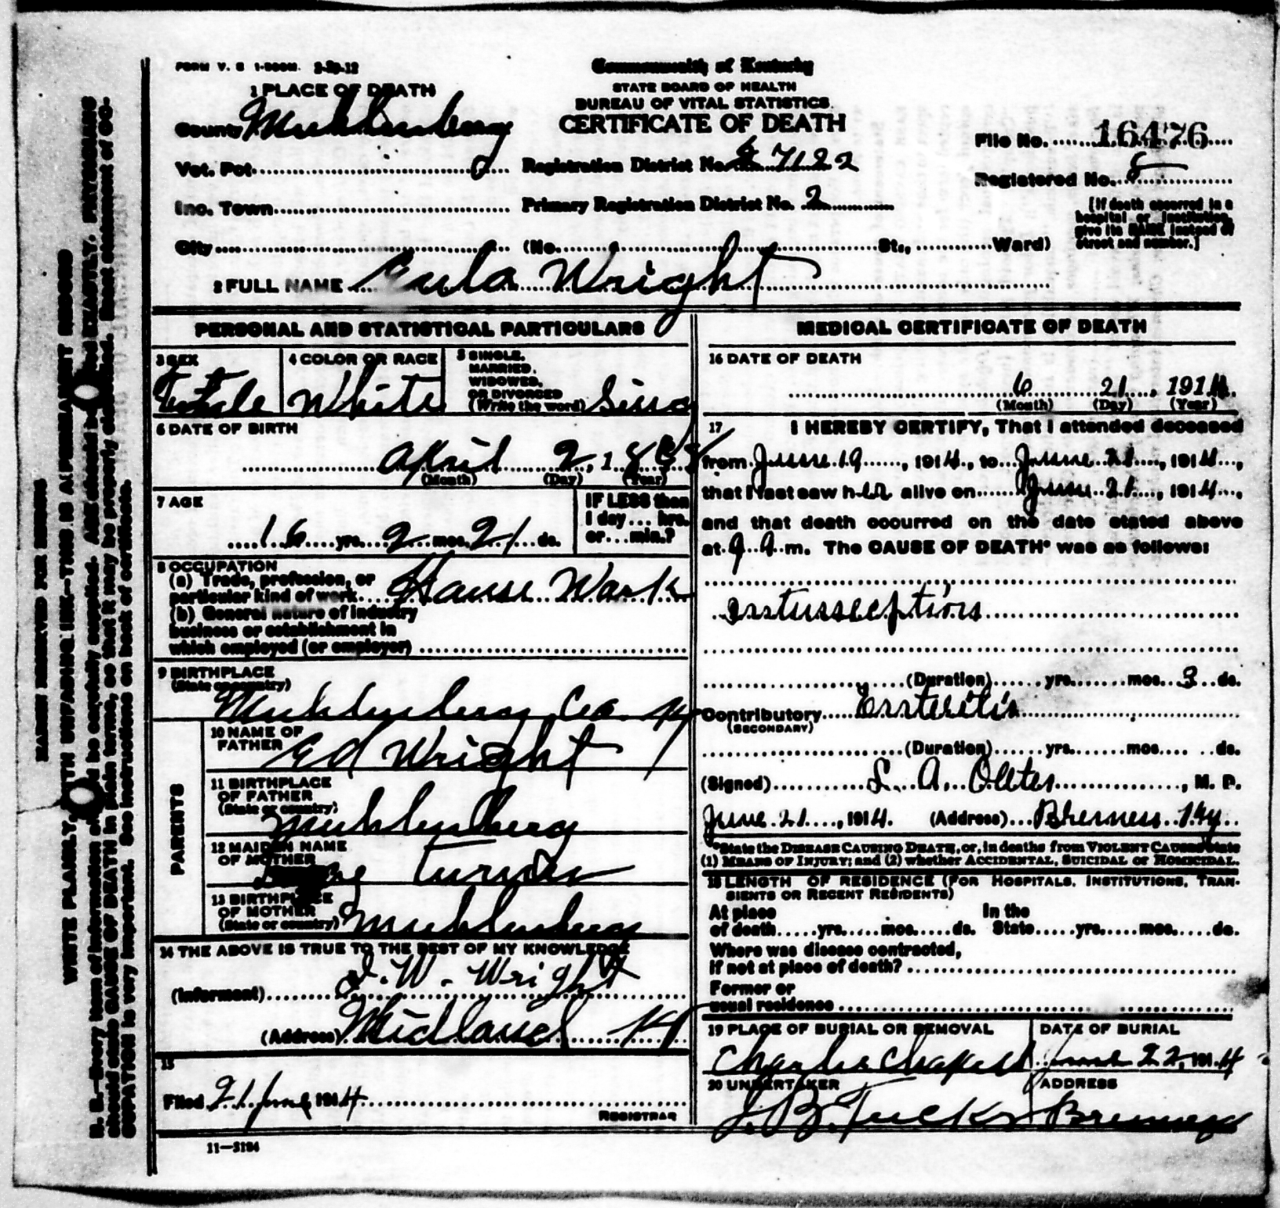 FORM V. S 1-500M. 2-29-12
Commonwealth of Kentucky
STATE BOARD OF HEALTH
BUREAU OF VITAL STATISTICS.
CERTIFICATE OF DEATH
1 PLACE OF DEATH
County Muhlenberg
Vot. Pct.
Registration District No. 7122
File No. 16476
Registered No. 8
Inc. Town
Primary Registration District No. 2
[If death occurred in a
hospital or institution,
give its NAME instead of
street and number.]
City (No. St., Ward)
2 FULL NAME Eula Wright
PERSONAL AND STATISTICAL PARTICULARS
3 SEX
4 COLOR OR RACE White
5 SINGLE,
MARRIED,
WIDOWED,
OR DIVORCED
(Write the word)
6 DATE OF BIRTH
April 2, 189
(Month) (Day) (Year)
7 AGE
16 yrs. 2 mos. 21 ds.
IF LESS than
1 day ... hrs.
or ... min.?
8 OCCUPATION
(a) Trade, profession, or
particular kind of work House Work
(b) General nature of industry
business or establishment in
which employed (or employer)
9 BIRTHPLACE
(State or country)
Muhlenberg Co. Ky
PARENTS
10 NAME OF
FATHER Ed Wright
11 BIRTHPLACE
OF FATHER
(State or country)
Muhlenberg
12 MAIDEN NAME
OF MOTHER
Turner
13 BIRTHPLACE
OF MOTHER
(State or country) Muhlenberg
14 THE ABOVE IS TRUE TO THE BEST OF MY KNOWLEDGE
(Informant) J. W. Wright
(Address) Midland Ky
15
Filed 21 June 1914
REGISTRAR
11—3184
MEDICAL CERTIFICATE OF DEATH
16 DATE OF DEATH
6 21, 1914
(Month) (Day) (Year)
17 I HEREBY CERTIFY, That I attended deceased
from June 19, 1914, to June 21, 1914,
that I last saw her alive on June 21, 1914,
and that death occurred on the date stated above
at 9 A m. The CAUSE OF DEATH* was as follows:
Intussception
(Duration) yrs. mos. 3 ds.
Contributory Enteritis
(SECONDARY)
(Duration) yrs. mos. ds.
(Signed) L. A. , M. D.
June 21, 1914. (Address) Ky.
*State the DISEASE CAUSING DEATH, or, in deaths from VIOLENT CAUSES state
(1) MEANS OF INJURY; and (2) whether ACCIDENTAL, SUICIDAL or HOMICIDAL.
18 LENGTH OF RESIDENCE (FOR HOSPITALS, INSTITUTIONS, TRAN-
SIENTS OR RECENT RESIDENTS)
At place In the
of death yrs. mos. ds. State yrs. mos. ds.
Where was disease contracted,
if not at place of death?
Former or
usual residence
19 PLACE OF BURIAL OR REMOVAL
DATE OF BURIAL
June 22, 1914
20 UNDERTAKER
ADDRESS
J. B. Tucker
MARGIN RESERVED FOR BINDING
WRITE PLAINLY, WITH UNFADING INK—THIS IS A PERMANENT RECORD
N. B.—Every item of information should be carefully supplied. AGE should be stated EXACTLY. PHYSICIANS
should state CAUSE OF DEATH in plain terms, so that it may be properly classified. Exact statement of OC-
CUPATION is very important. See instructions on back of certificate.